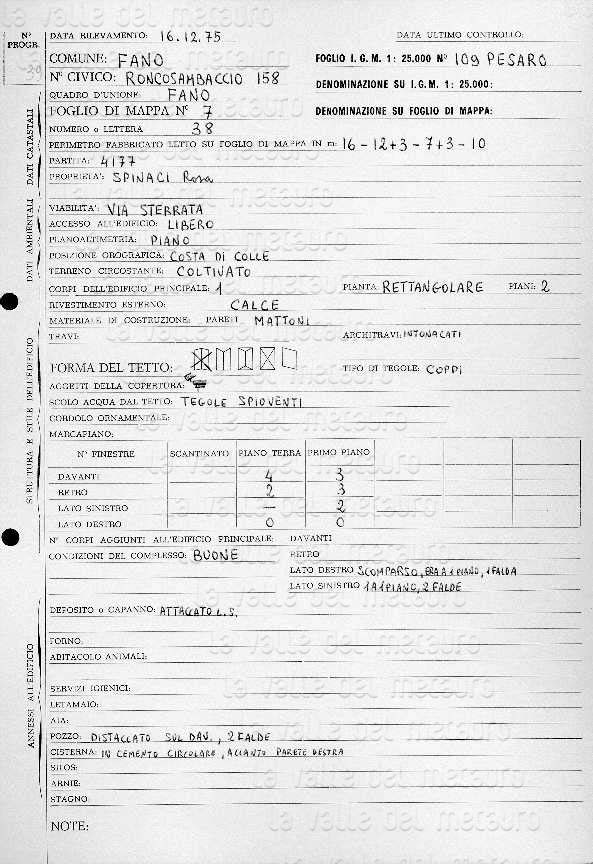 N° PROGR.
DATA RILEVAMENTO: 16.12.75
DATA ULTIMO CONTROLLO:
COMUNE: FANO
FOGLIO I.G.M. 1: 25.000 N° 109 PESARO
N° CIVICO: RONCOSAMBACCIO 158
DENOMINAZIONE SU I.G.M. 1: 25.000:
QUADRO D'UNIONE: FANO
FOGLIO DI MAPPA N° 7
DENOMINAZIONE SU FOGLIO DI MAPPA:
NUMERO o LETTERA 38
PERIMETRO FABBRICATO LETTO SU FOGLIO DI MAPPA IN m: 16-12+3-7+3-10
PARTITA: 4177
PROPRIETA': SPINACI Rosa
DATI CATASTALI
VIABILITA': VIA STERRATA
ACCESSO ALL'EDIFICIO: LIBERO
PLANOALTIMETRIA: PIANO
POSIZIONE OROGRAFICA: COSTA DI COLLE
TERRENO CIRCOSTANTE: COLTIVATO
DATI AMBIENTALI
CORPI DELL'EDIFICIO PRINCIPALE: 1 PIANTA: RETTANGOLARE PIANI: 2
RIVESTIMENTO ESTERNO: CALCE
MATERIALE DI COSTRUZIONE: PARETI MATTONI
TRAVI: ARCHITRAVI: INTONACATI
FORMA DEL TETTO: TIPO DI TEGOLE: COPPI
AGGETTI DELLA COPERTURA:
SCOLO ACQUA DAL TETTO: TEGOLE SPIOVENTI
CORDOLO ORNAMENTALE:
MARCAPIANO:
N° FINESTRE SCANTINATO PIANO TERRA PRIMO PIANO
DAVANTI 4 3
RETRO 2 3
LATO SINISTRO — 2
LATO DESTRO 0 0
STRUTTURA E STILE DELL'EDIFICIO
N° CORPI AGGIUNTI ALL'EDIFICIO PRINCIPALE: DAVANTI
CONDIZIONI DEL COMPLESSO: BUONE RETRO
LATO DESTRO SCOMPARSO, ERA A 1 PIANO, 1 FALDA
LATO SINISTRO 1 A 1 PIANO, 2 FALDE
DEPOSITO o CAPANNO: ATTACCATO L.S.
FORNO:
ABITACOLO ANIMALI:
SERVIZI IGIENICI:
LETAMAIO:
AIA:
POZZO: DISTACCATO SUL DAV., 2 FALDE
CISTERNA: IN CEMENTO CIRCOLARE, ACCANTO PARETE DESTRA
SILOS:
ARNIE:
STAGNO:
ANNESSI ALL'EDIFICIO
NOTE:
la valle del metauro